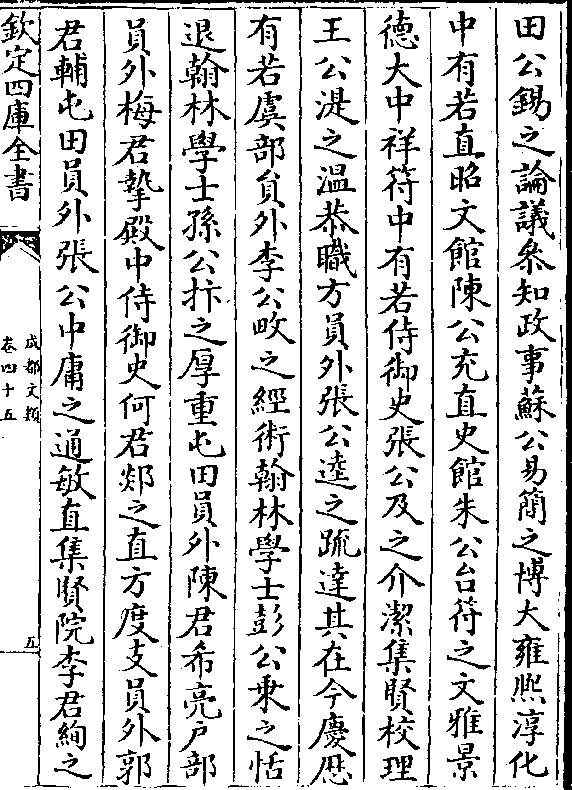 田公錫之論議叅知政事蘇公易簡之博大雍熈淳化
中有若直昭文館陳公充直史館朱公台符之文雅景
德大中祥符中有若侍御史張公及之介潔集賢校理
王公湜之温恭職方員外張公逵之䟽達其在今慶厯
有若虞部貟外李公畋之經術翰林學士彭公乗之恬
退翰林學士孫公抃之厚重屯田員外陳君希亮户部
員外梅君摯殿中侍御史何君郯之直方度支員外郭
君輔屯田員外張公中庸之通敏直集賢院李君絢之
欽定四庫全書
成都文類
卷四十五
五